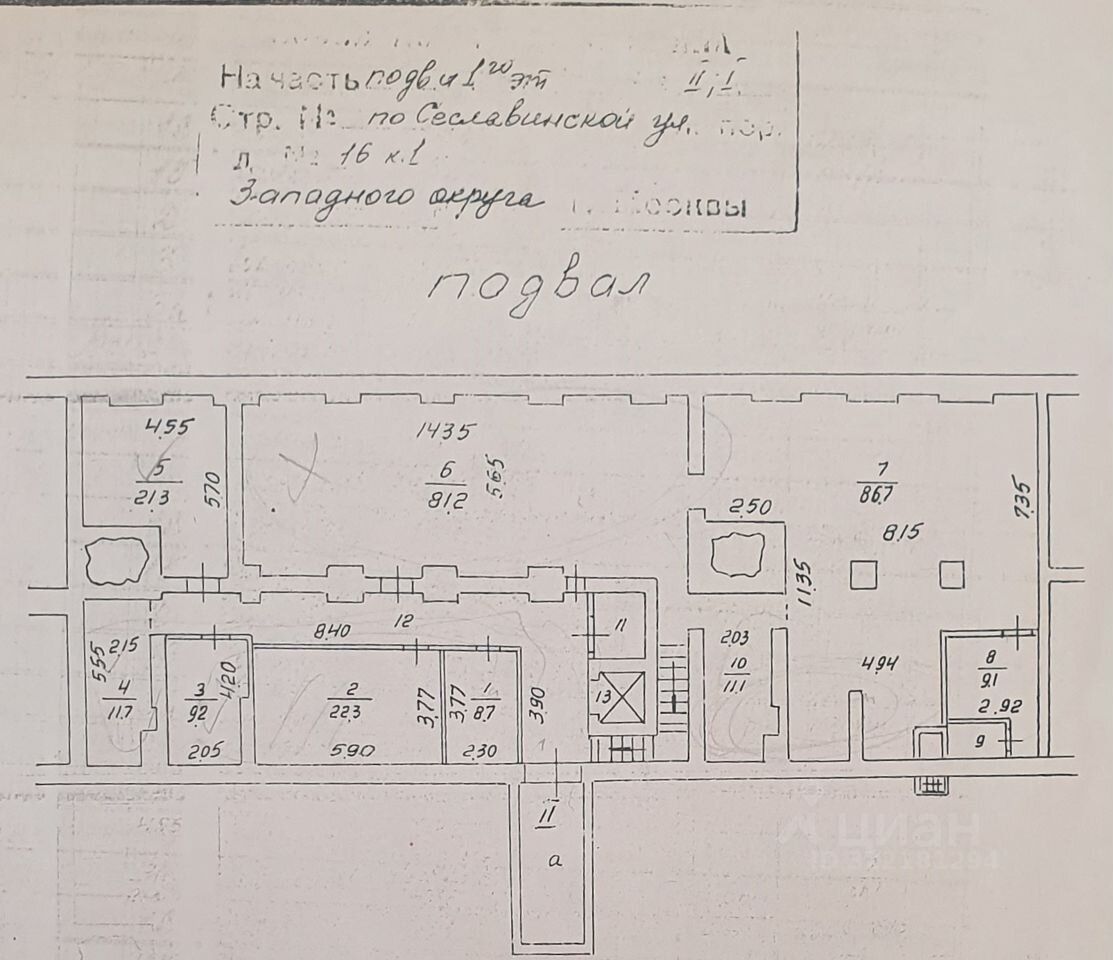 На часть подв и 1го эт II, I
Стр. № по Сеславинской ул. пер.
д. № 16 к.1
Западного округа г. Москвы
подвал
4.55
5
21.3
5.70
14.35
6
81.2
5.65
7
86.7
7.35
2.50
8.15
11.35
8.40
12
11
13
2.15
5.55
4
11.7
3
9.2
4.20
2.05
2
22.3
3.77
5.90
1
8.7
3.77
2.30
3.90
2.03
10
11.1
4.94
8
9.1
2.92
9
II
а
ЦИАН